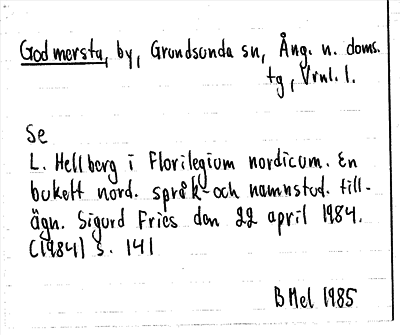 Godmersta, by, Grundsunda sn, Ång. n. doms.
tg, Vrnl. l.
Se
L. Hellberg i Florilegium nordicum. En
bukett nord. språk- och namnstud. till-
ägn. Sigurd Fries den 22 april 1984.
(1984) s. 141
B Mel 1985